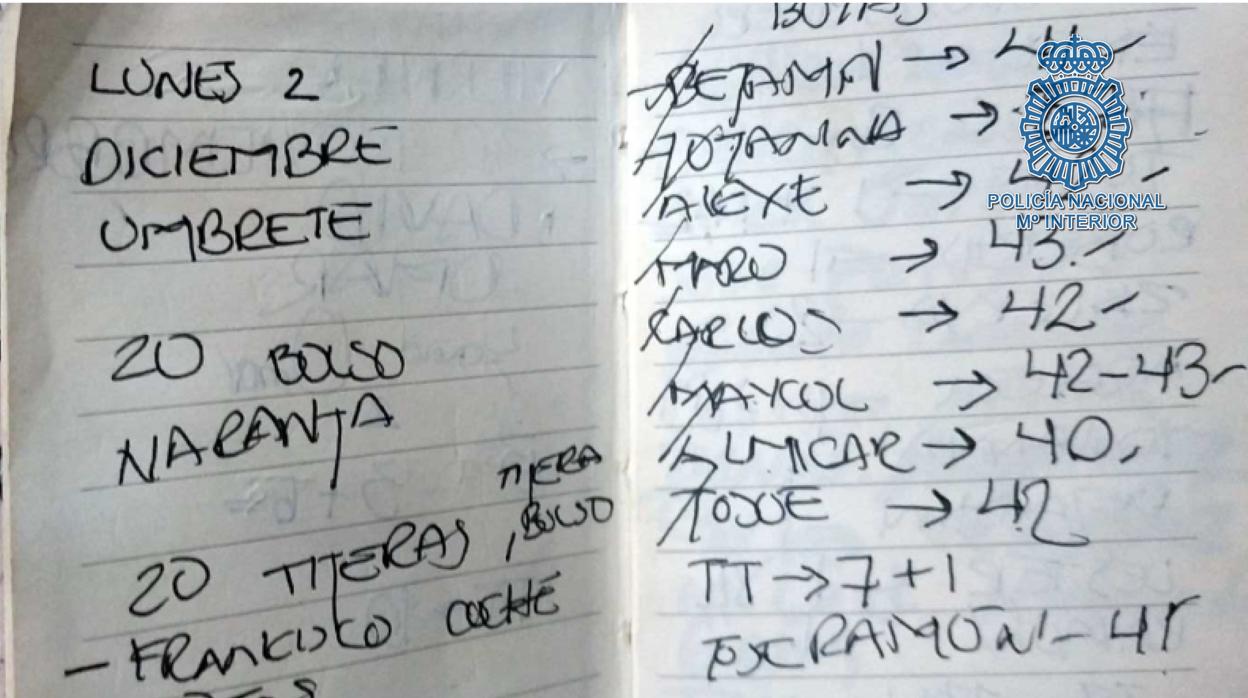 LUNES 2
DICIEMBRE
UMBRETE
20 BOLSO
NARANJA
TIJERA
20 TIJERAS, BOLSO
- FRANCISCO COCHE
BOTAS
BEJAMIN →
JOJANINA →
ALEXE →
MARO → 43.-
CARLOS → 42-
MAYCOL → 42-43-
ALMICAR → 40,
JOSUE → 42
TT → 7+1
JOSE RAMÓN - 41
POLICÍA NACIONAL
Mº INTERIOR